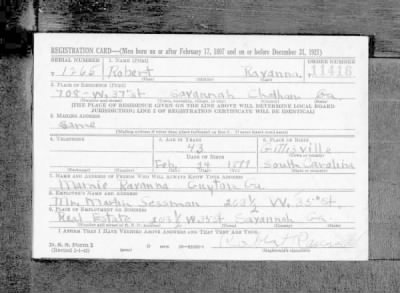 REGISTRATION CARD—(Men born on or after February 17, 1897 and on or before December 31, 1921)
SERIAL NUMBER 1. NAME (Print) ORDER NUMBER
1265 Robert Ravanna 11416
(First) (Middle) (Last)
2. PLACE OF RESIDENCE (Print)
708-W. 37 St Savannah Chatham Ga.
(Number and street) (Town, township, village, or city) (County) (State)
[THE PLACE OF RESIDENCE GIVEN ON THE LINE ABOVE WILL DETERMINE LOCAL BOARD
JURISDICTION; LINE 2 OF REGISTRATION CERTIFICATE WILL BE IDENTICAL]
3. MAILING ADDRESS
Same
[Mailing address if other than place indicated on line 2. If same insert word same]
4. TELEPHONE 5. AGE IN YEARS 6. PLACE OF BIRTH
43
DATE OF BIRTH
Feb. 14 South Carolina
7. NAME AND ADDRESS OF PERSON WHO WILL ALWAYS KNOW YOUR ADDRESS
Ravanna Guyton Ga
8. EMPLOYER'S NAME AND ADDRESS
Mr. Martin W. 35th St
9. PLACE OF EMPLOYMENT OR BUSINESS
Real Estate W. 35 St Savannah Ga.
(Number and street or R. F. D. number) (Town) (County) (State)
I AFFIRM THAT I HAVE VERIFIED ABOVE ANSWERS AND THAT THEY ARE TRUE.
D. S. S. Form 1
(Revised 1-1-42) (Registrant's signature)